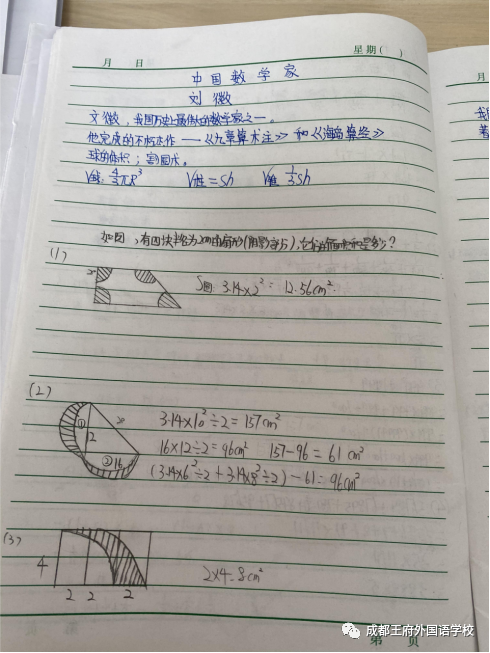 月 日 星期( )
中国数学家
刘徽
文徽，我国历史上最伟大的数学家之一。
他完成的不朽之作——《九章算术注》和《海岛算经》
球的体积；割圆术。
V球=4/3πR³ V柱=Sh V锥 1/3Sh
如图，有四块半径为2cm的扇形(阴影部分)，它们的面积和是多少？
(1)
2cm
S圆: 3.14×2²= 12.56cm²
(2)
① 8
12
② 16
3.14×10²÷2=157cm²
16×12÷2=96cm² 157-96=61cm²
(3.14×6²÷2+3.14×8²÷2)-61=96cm²
(3)
4
2 2 2
2×4=8cm²
第 页
月
成都王府外国语学校